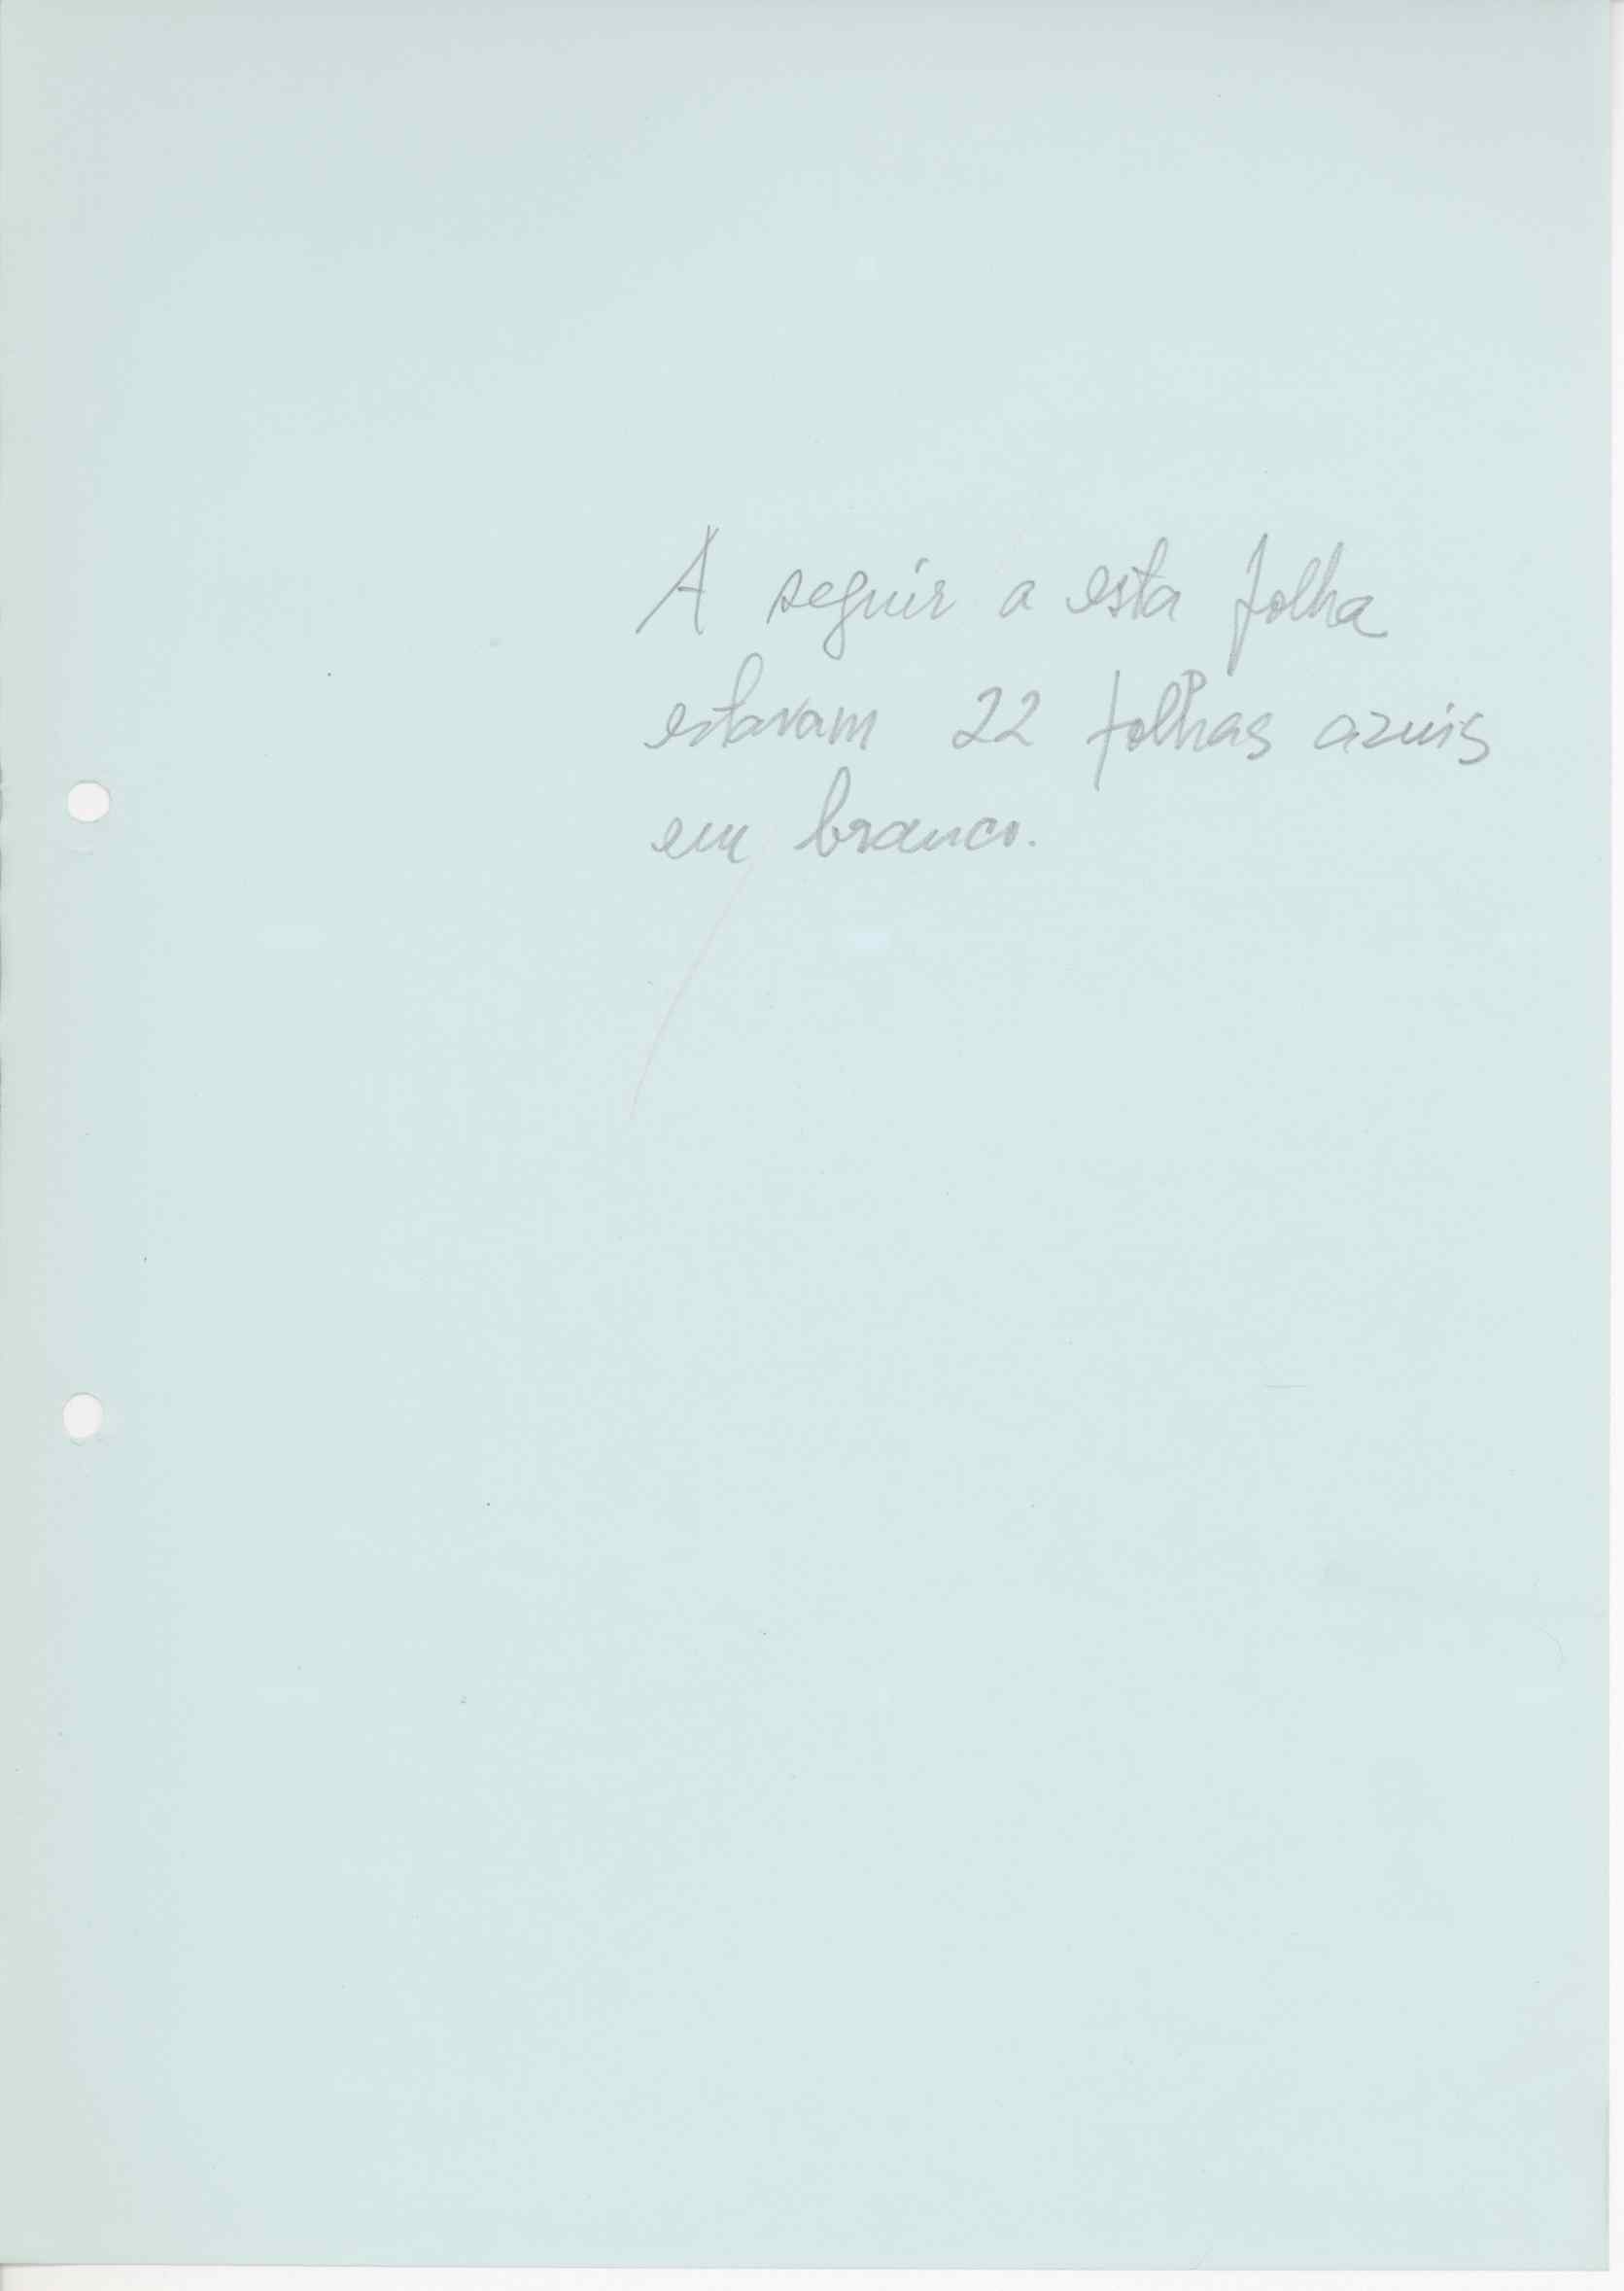 A seguir a esta folha
estavam 22 folhas azuis
em branco.